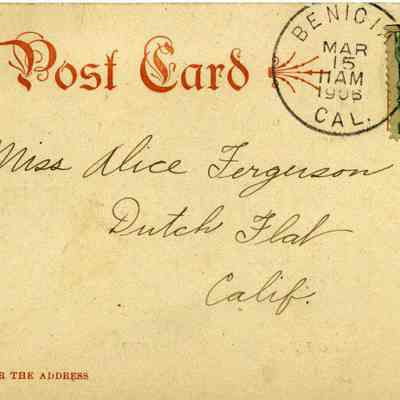 Post Card
BENICIA
MAR
15
11AM
1906
CAL.
Miss Alice Ferguson
Dutch Flat
Calif.
R THE ADDRESS